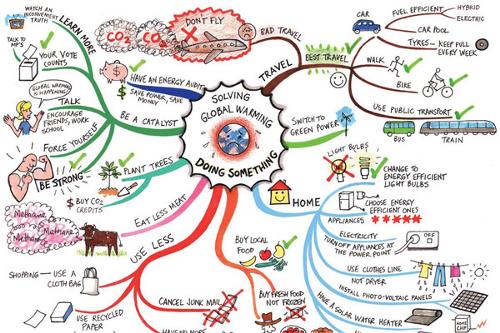 WATCH AN
INCONVENIENT
TRUTH
LEARN MORE
TALK TO
MP'S
YOUR VOTE
COUNTS
GLOBAL WARMING
IS HAPPENING
TALK
ENCOURAGE
FRIENDS, WORK
SCHOOL
FORCE YOURSELF
BE STRONG
CO2
CO2
DON'T FLY
BAD TRAVEL
HAVE AN ENERGY AUDIT
$ SAVE POWER, SAVE
MONEY
BE A CATALYST
PLANT TREES
$ BUY CO2
CREDITS
SOLVING
GLOBAL WARMING
DOING SOMETHING
TRAVEL
BEST TRAVEL
CAR
FUEL EFFICIENT
HYBRID
ELECTRIC
CAR POOL
TYRES - KEEP FULL
EVERY WEEK
WALK
BIKE
USE PUBLIC TRANSPORT
BUS
TRAIN
SWITCH TO
GREEN POWER
HOME
LIGHT BULBS
CHANGE TO
ENERGY EFFICIENT
LIGHT BULBS
APPLIANCES
CHOOSE ENERGY
EFFICIENT ONES
ELECTRICITY
TURN OFF APPLIANCES AT
THE POWER POINT
OFF
USE CLOTHES LINE
NOT DRYER
INSTALL PHOTO-VOLTAIC PANELS
HAVE A SOLAR WATER HEATER
EAT LESS MEAT
Methane
Methane
Methane
USE LESS
SHOPPING - USE A
CLOTH BAG
USE RECYCLED
PAPER
CANCEL JUNK MAIL
BUY LOCAL
FOOD
BUY FRESH FOOD
NOT FROZEN